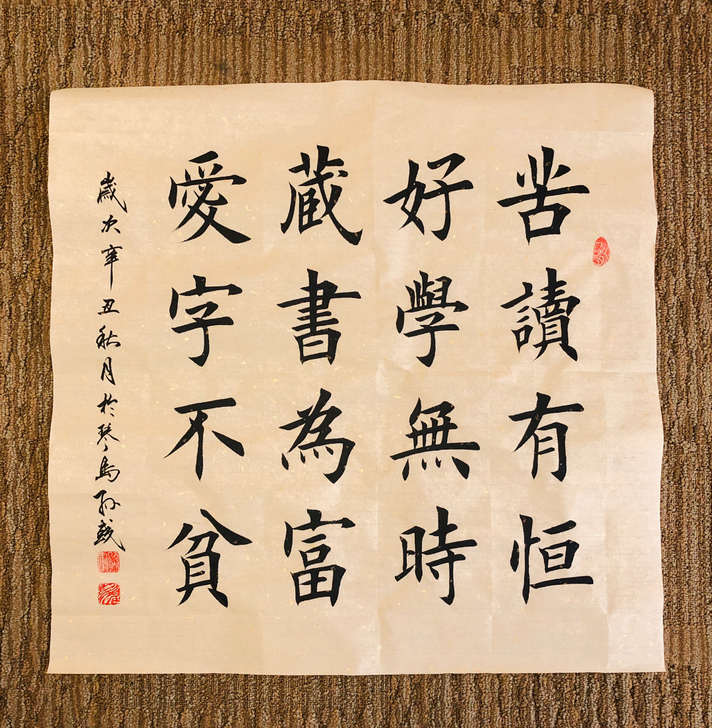 苦讀有恒
好學無時
蔵書為富
愛字不貧
歲次辛丑秋月於琴島孫